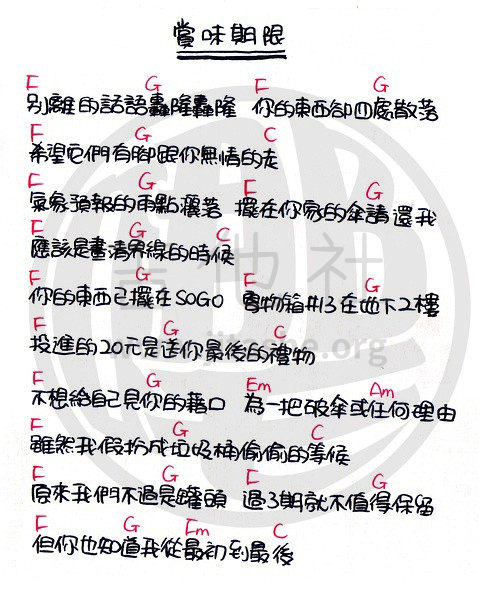 賞味期限
F G F G
別離的話語轟隆轟隆 你的東西卻四處散落
F G C
希望它們有腳跟你無情的走
F G F G
氣象預報的雨點灑落 擺在你家的傘請還我
F G C
應該是畫清界線的時候
F G F G
你的東西已擺在SOGO 寄物箱#13在地下2樓
F G C
投進的20元是送你最後的禮物
F G Em Am
不想給自己見你的藉口 為一把破傘或任何理由
F G C
雖然我假扮成垃圾桶偷偷的等候
F G F G
原來我們不過是罐頭 過3期就不值得保留
F G Em C
但你也知道我從最初到最後
吉他社